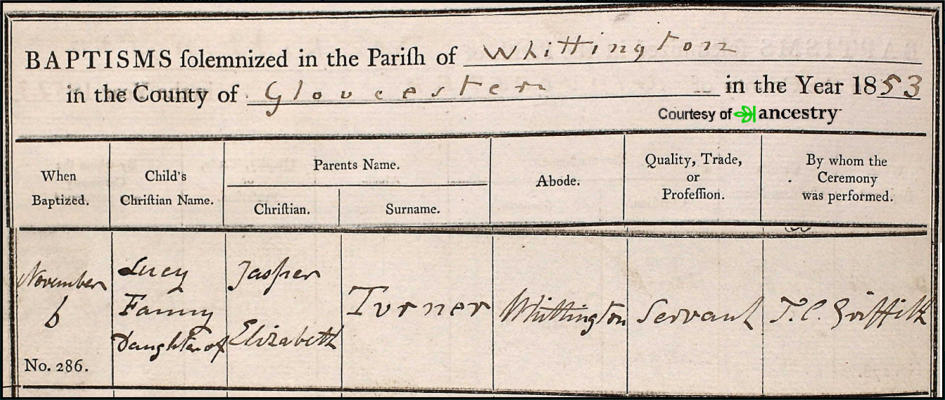 BAPTISMS ſolemnized in the Pariſh of Whittington
in the County of Gloucester in the Year 1853
Courtesy of ancestry
When Baptized.
Child's Chriſtian Name.
Parents Name.
Chriſtian.
Surname.
Abode.
Quality, Trade, or Profeſſion.
By whom the Ceremony was performed.
November 6
No. 286.
Lucy Fanny Daughter of
Jasper Elizabeth
Turner
Whittington
Servant
T. C. Griffith